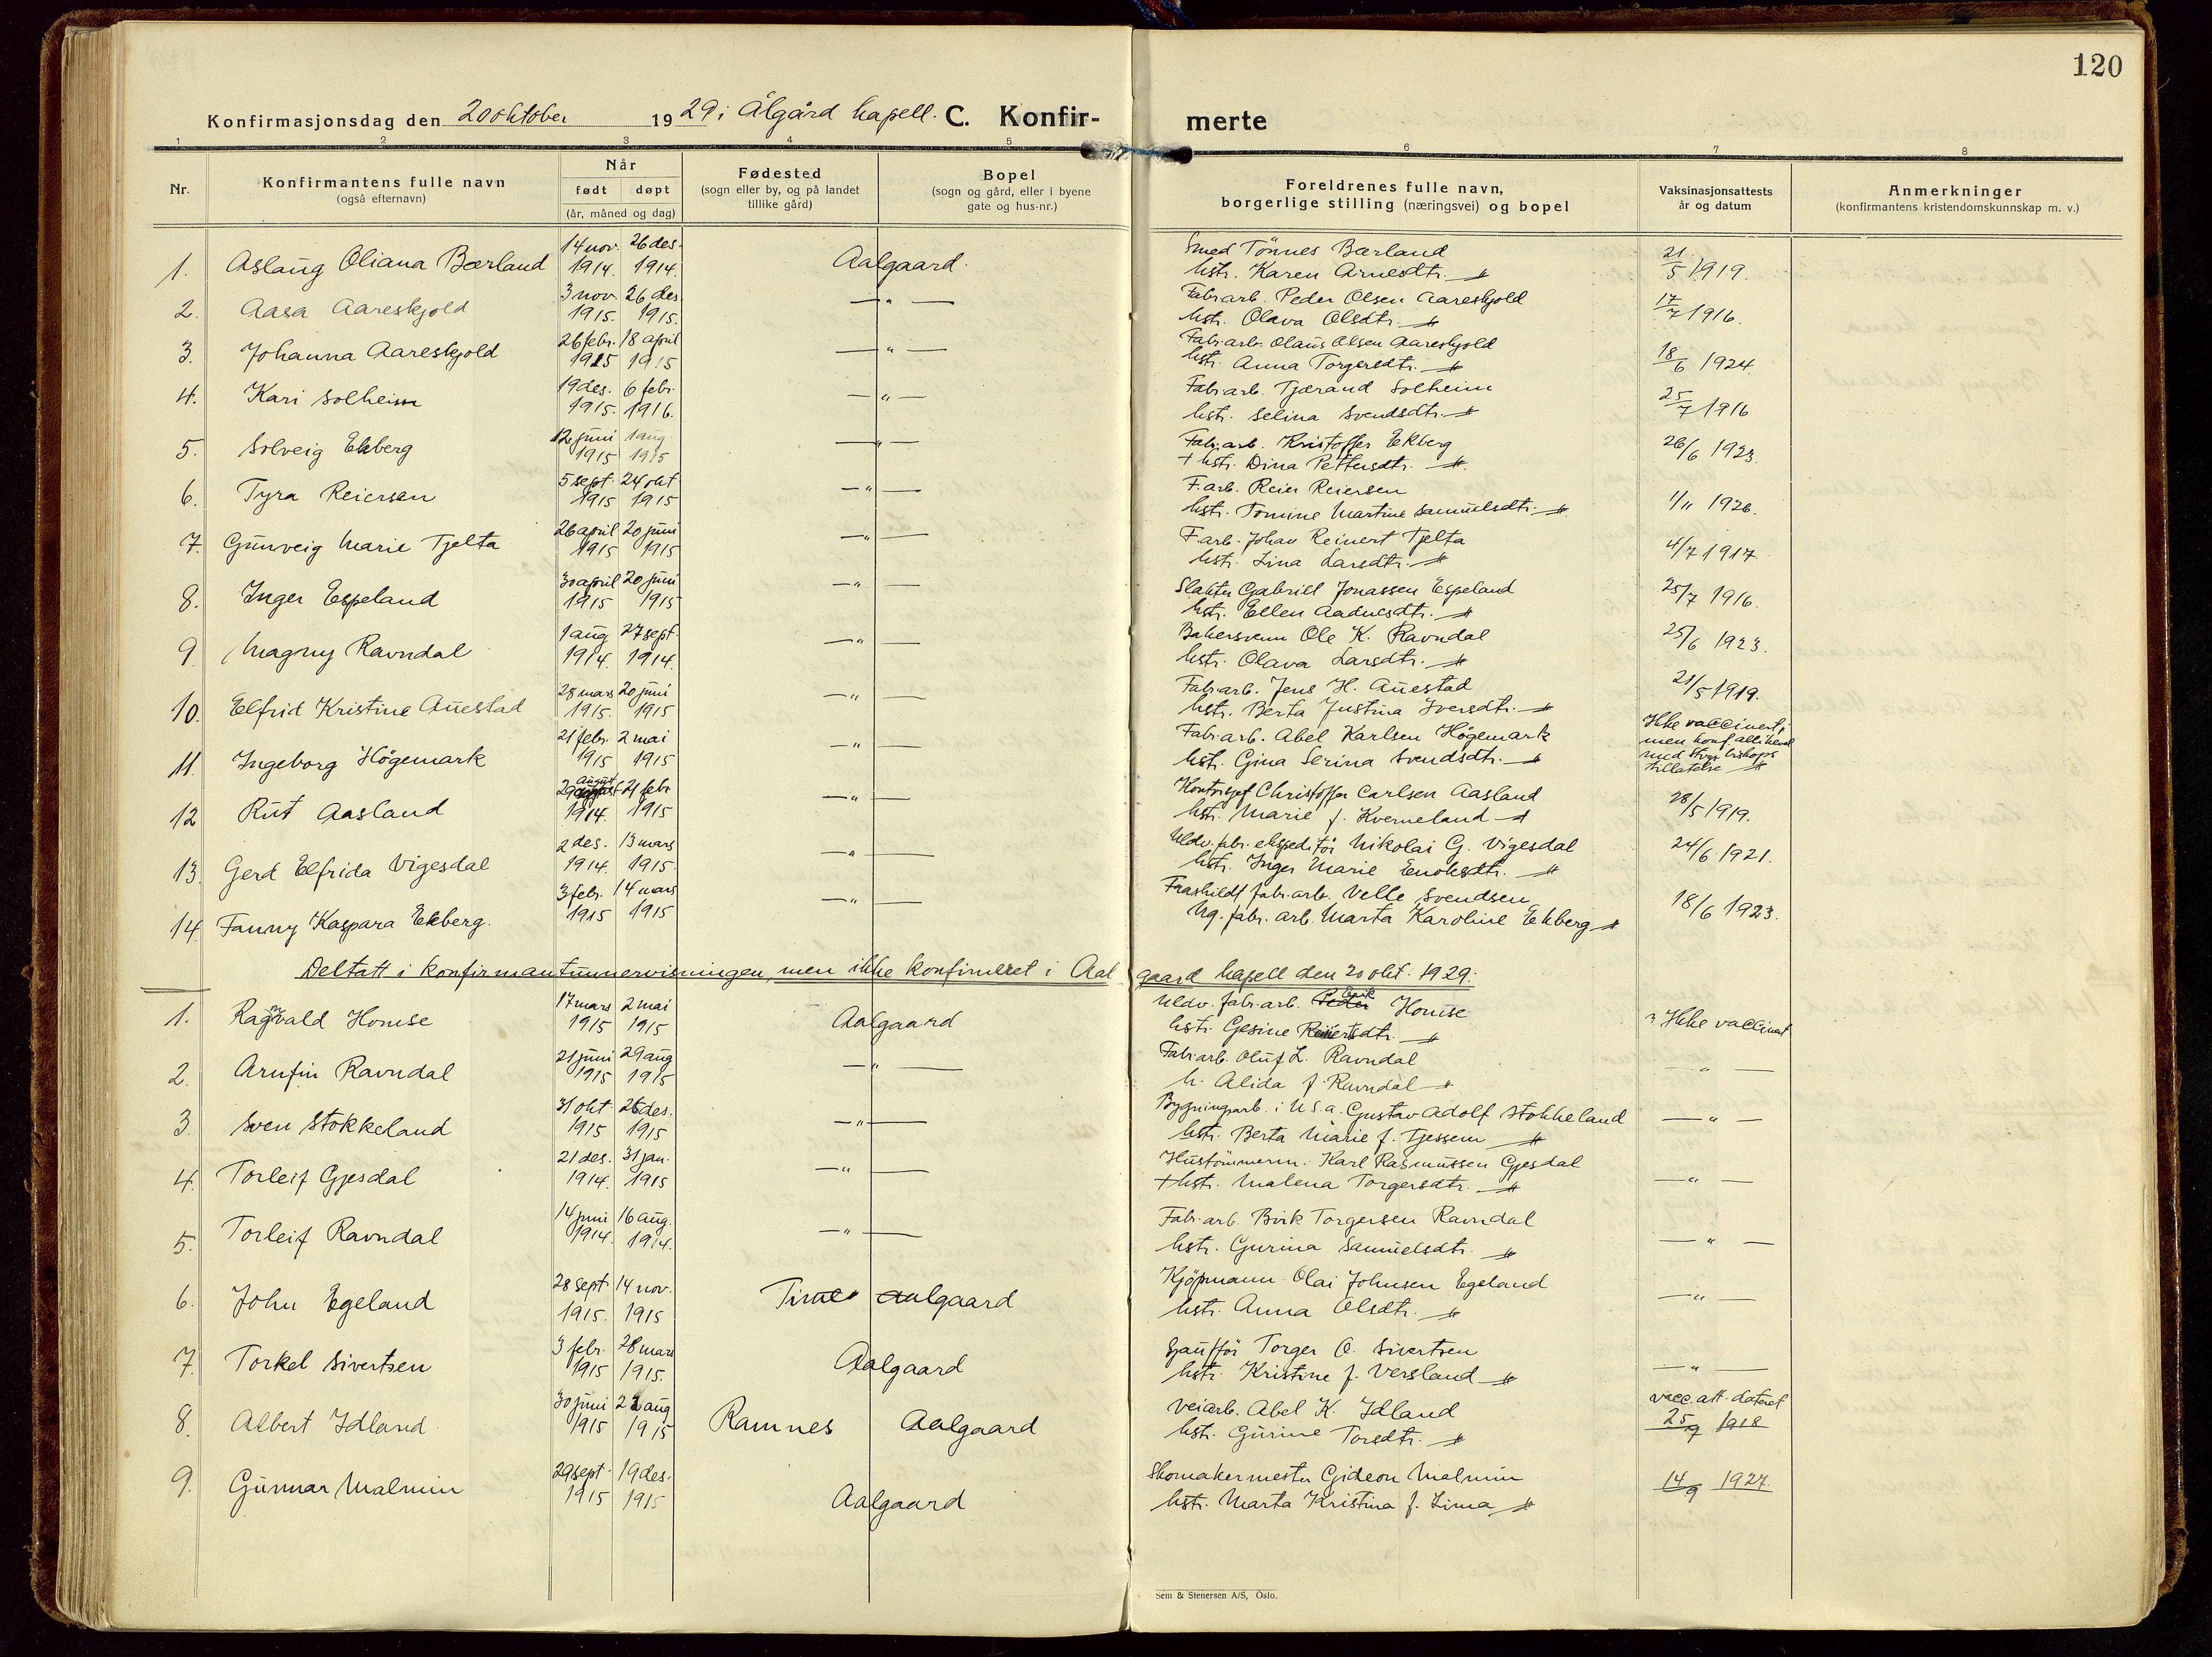 120
Konfirmasjonsdag den 20 oktober 1929 i Ålgård kapell. C. Konfir- merte
1 2 3 4 5 6 7 8
Nr.
Konfirmantens fulle navn
(også efternavn)
Når
født døpt
(år, måned og dag)
Fødested
(sogn eller by, og på landet
tillike gård)
Bopel
(sogn og gård, eller i byene
gate og hus-nr.)
Foreldrenes fulle navn,
borgerlige stilling (næringsvei) og bopel
Vaksinasjonsattests
år og datum
Anmerkninger
(konfirmantens kristendomskunnskap m. v.)
14 nov. 26 des. Smed Tönnes Bærland 21
1. Aslaug Oliana Bærland 1914. 1914. Aalgaard. hstr. Karen Arnesdtr. —〃 5 1919.
3 nov. 26 des. Fabr.arb. Peder Olsen Aareskjold 17
2. Aasa Aareskjold 1915. 1915. —〃— hstr. Olava Olsdtr. —〃 7 1916.
26 febr. 18 april Fabr.arb. Olaus Olsen Aareskjold
3. Johanna Aareskjold 1915 1915 —〃— hstr. Anna Torgersdtr. —〃 18/6 1924
19 des. 6 febr. Fabr.arb. Tjærand Solheim
4. Kari Solheim 1915. 1916. —〃— hstr. Selina Svendsdtr. —〃 25/7 1916
12 juni 1 aug. Fabr.arb. Kristoffer Ekberg
5. Solveig Ekberg 1915 1915 —〃— + hstr. Dina Pettersdtr. —〃. 26/6 1923.
5 sept. 24 okt F.arb. Reier Reiersen
6. Tyra Reiersen 1915 1915 —〃— hstr. Tomine Martine Samuelsdtr. —〃 1/11 1926.
26 april 20 juni F.arb. Johan Reinert Tjelta
7. Gunveig Marie Tjelta 1915 1915 —〃— hstr. Lina Larsdtr. —〃 4/7 1917
30 april 20 juni Slakter Gabriel Jonassen Espeland
8. Inger Espeland 1915 1915 —〃— hstr. Ellen Aadnesdtr. —〃 25/7 1916.
1 aug 27 sept. Bakersvenn Ole K. Ravndal
9. Magny Ravndal 1914. 1914. —〃— hstr. Olava Larsdtr. —〃 25/6 1923.
28 mars 20 juni Fabr.arb. Jens H. Auestad
10. Elfrid Kristine Auestad 1915. 1915 —〃— hstr. Berta Justina Iversdtr. —〃 21/5 1919.
21 febr. 2 mai Fabr.arb. Abel Karlsen Högemark Ikke vaccinert,
11. Ingeborg Högemark 1915 1915 —〃— hstr. Gina Serina Svendsdtr. —〃 men konf. allikevel
med biskops
tillatelse —〃
29 august 21 febr Kontorsjef Christoffer Carlsen Aasland
12 Rut Aasland 1914. 1915 —〃— hstr. Marie f. Kverneland —〃 28/5 1919.
2 des. 13 mars Uldv.fabr. ekspeditör Nikolai G. Vigesdal
13. Gerd Elfrida Vigesdal 1914. 1915. —〃— hstr. Inger Marie Enoksdtr. —〃 24/6 1921.
3 febr. 14 mars Fraskildt fabr.arb. Velle Svendsen
14. Fanny Kaspara Ekberg. 1915 1915 —〃— Ug. fabr. arb. Marta Karoline Ekberg —〃 18/6 1923.
Deltatt i konfirmantunnervisningen, men ikke konfirmeret i Aalgaard kapell den 20 okt. 1929.
17 mars 2 mai Uldv. fabr.arb. Homse
1. Ragnvald Homse 1915 1915 Aalgaard hstr. Gesine Reinertsdtr. —〃 Ikke vaccinert
21 juni 29 aug Fabr.arb. Oluf L. Ravndal
2. Arnfin Ravndal 1915 1915 —〃— h. Alida f. Ravndal —〃 —〃—
31 okt. 26 des. Bygningsarb. i U S.a. Gustav Adolf Stokkeland
3. Sven Stokkeland 1915 1915 —〃— hstr. Berta Marie f. Tjessem —〃 —〃—
21 des. 31 jan. Hustömmerm. Karl Rasmussen Gjesdal
4. Torleif Gjesdal 1914. 1915 —〃— + hstr. Malena Torgersdtr. —〃 —〃—
14 juni 16 aug. Fabr.arb. Birk Torgersen Ravndal
5. Torleif Ravndal 1914. 1914. —〃— hstr. Gurina Samuelsdtr. —〃 —〃—
28 sept. 14 nov. Kjöpmann Olai Johnsen Egeland
6. John Egeland 1915. 1915 Time Aalgaard hstr. Anna Olsdtr. —〃 —〃—
3 febr. 28 mars Sjaufför Torger O. Sivertsen
7. Torkel Sivertsen 1915 1915. Aalgaard hstr. Kristine f. Versland —〃 —〃—
30 juni 22 aug veiarb. Abel K. Idland vacc. att. dateret
8. Albert Idland. 1915 1915 Ramnes Aalgaard hstr. Gurine Torsdtr. —〃 25/9 1918
29 sept. 19 des. Skomakermester Gideon Malmin
9. Gunnar Malmin 1915 1915 Aalgaard hstr. Marta Kristina f. Lima —〃 14/9 1927.
Sem & Stenersen A/S, Oslo.